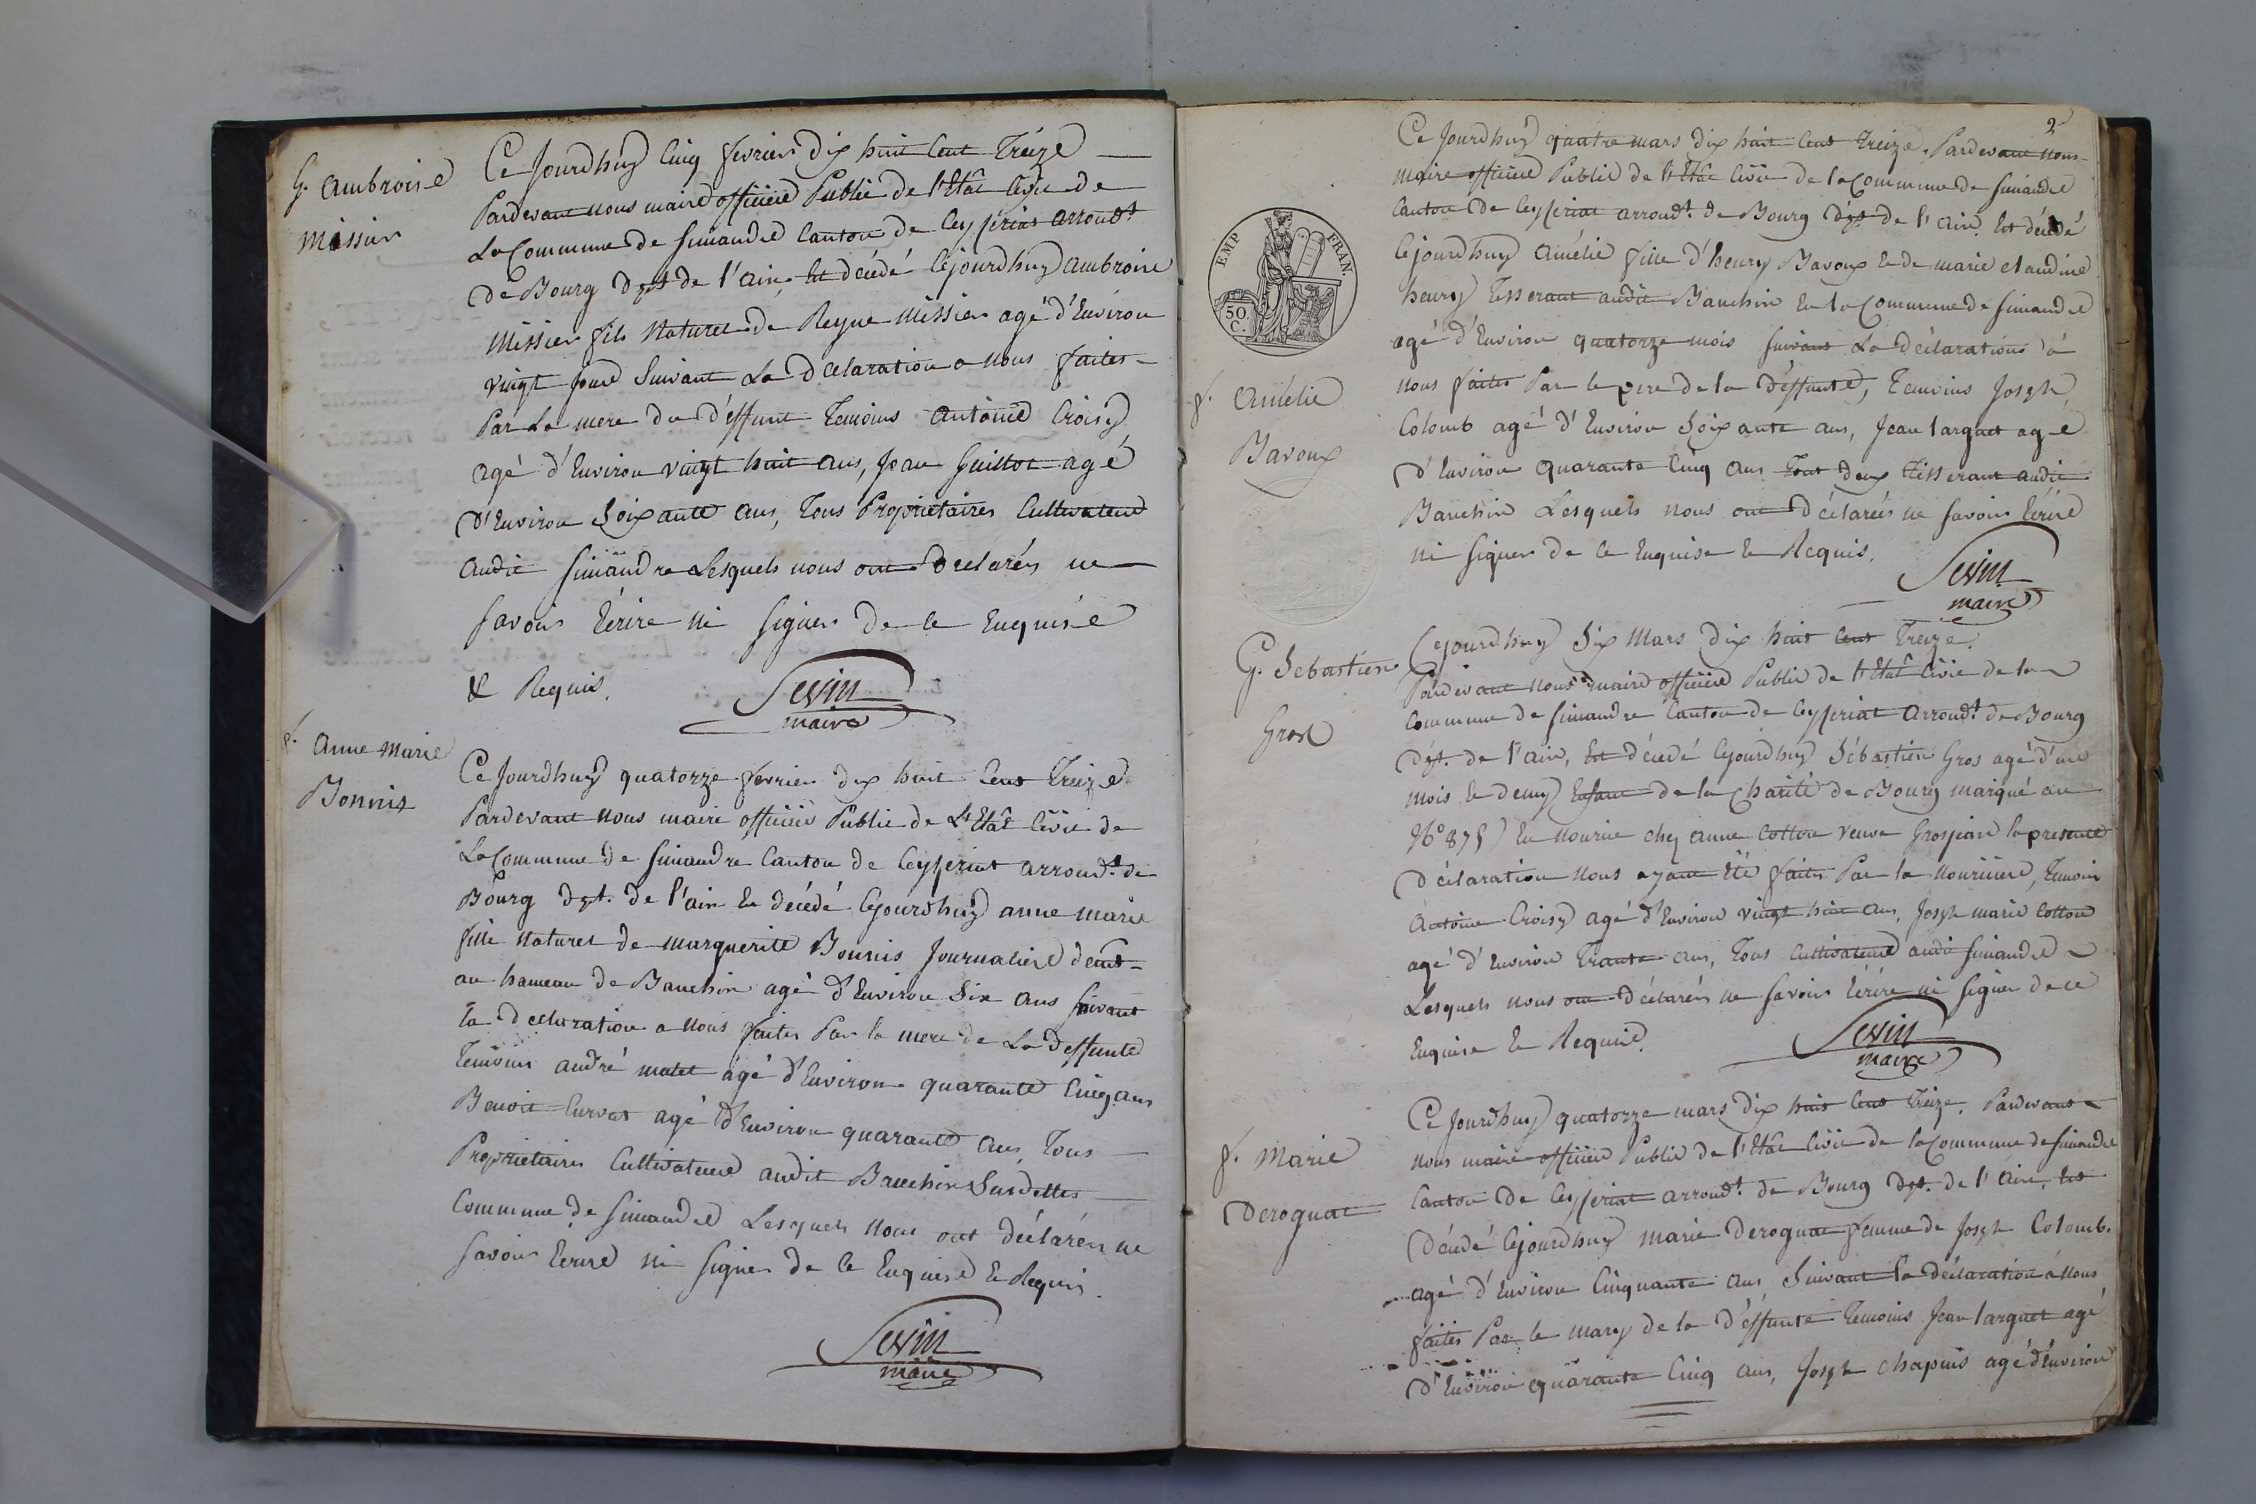 G. Ambroise
Missier
Ce Jourdhuy Cinq fevrier dix huit Cent Treize
Pardevant nous maire officier Public de l'Etât Civie de
La Commune de Simandre Canton de Ceyseriat arroud.t
de Bourg dpt de l'ain, Est décédé Cejourdhuy ambroise
Missier fils Naturel de Reyne Missier agé d'Environ
vingt Jours Suivant La déclaration a nous faites
Par La mere du déffunt Temoins Antoine Croisy
agé d'Environ vingt huit ans, Jean Guillot agé
d'Environ Soixante ans, Tous Proprietaires Cultivateurs
audit Simandre Lesquels nous ont déclarés ne
Savoir Ecrire ni Signer de ce Enquise
& Requis.
Sevin
maire
f. Anne Marie
Bonnis
Ce Jourdhuy quatorze fevrier dix huit Cent Treize
Pardevant nous maire officier Public de L'Etât Civie de
La Commune de Simandre Canton de Ceyseriat arroud.t de
Bourg dpt. de l'ain Est décédé Cejourdhuy anne marie
fille Naturel de marguerite Bonnis Journaliere demt
au hameau de Banchin agé d'Environ Six ans Suivant
la déclaration a nous faites Par la mere de La deffunte
Temoins andré malet agé d'Environ quarante Cinq ans
Benoit Curvat agé d'Environ quarante ans, Tous
Proprietaires Cultivateurs audit Banchin Susdittes
Commune de Simandre Lesquels nous ont déclarés ne
Savoir Ecrire ni Signer de ce Enquise & Requis.
Sevin
maire
2
EMP FRAN.
50
C.
f. Amélie
Bavoux
Ce Jourdhuy quatre mars dix huit Cent Treize. Pardevant nous
maire officier Public de l'Etât Civie de la Commune de Simandre
Canton de Ceyseriat arroud.t de Bourg dpt de l'ain. Est décédé
Cejourdhuy Amélie fille d'henry Bavoux & de marie claudine
henry Tisserant audit Banchin En la Commune de Simandre
agé d'Environ quatorze mois Suivant La déclarations à
nous faites Par le pere de la déffunte, Temoins Joseph
Colomb agé d'Environ Soixante ans, Jean larguet agé
d'Environ quarante Cinq ans Tout deux Tisserant audit
Banchin Lesquels nous ont déclarés ne Savoir Ecrire
ni Signer de ce Enquise & Requis.
Sevin
maire
G. Sebastien
Gros
Cejourdhuy Six Mars dix huit Cent Treize.
Pardevant nous maire officier Public de l'Etât Civie de la
Commune de Simandre Canton de Ceyseriat Arroud.t de Bourg
dpt. de l'ain, Est décédé Cejourdhuy Sébastien Gros agé d'un
mois & demy Enfant de la Charité de Bourg marqué au
N.o 875) En nourice chez anne Cotton veuve Grosjean la presente
déclaration nous ayant Eté faites Par la nouriciere, Temoin
Antoine Croisy agé d'Environ vingt huit ans, Joseph marie Cotton
agé d'Environ Trante ans, Tous Cultivateurs audit Simandre
Lesquels nous ont déclarés ne Savoir Ecrire ni Signer de ce
Enquise & Requise.
Sevin
maire
f. Marie
Deroguat
Ce Jourdhuy quatorze mars dix huit Cent Treize. Pardevant
nous maire officier Public de l'Etât Civie de la Commune de Simandre
Canton de Ceyseriat arroud.t de Bourg dpt. de l'ain, Est
décédé Cejourdhuy Marie Deroguat femme de Joseph Colomb.
agé d'Environ Cinquante ans Suivant la déclaration á nous
faites Par le mary de la déffunte Temoins Jean larguet agé
d'Environ quarante Cinq ans, Joseph chapuis agé d'Environ